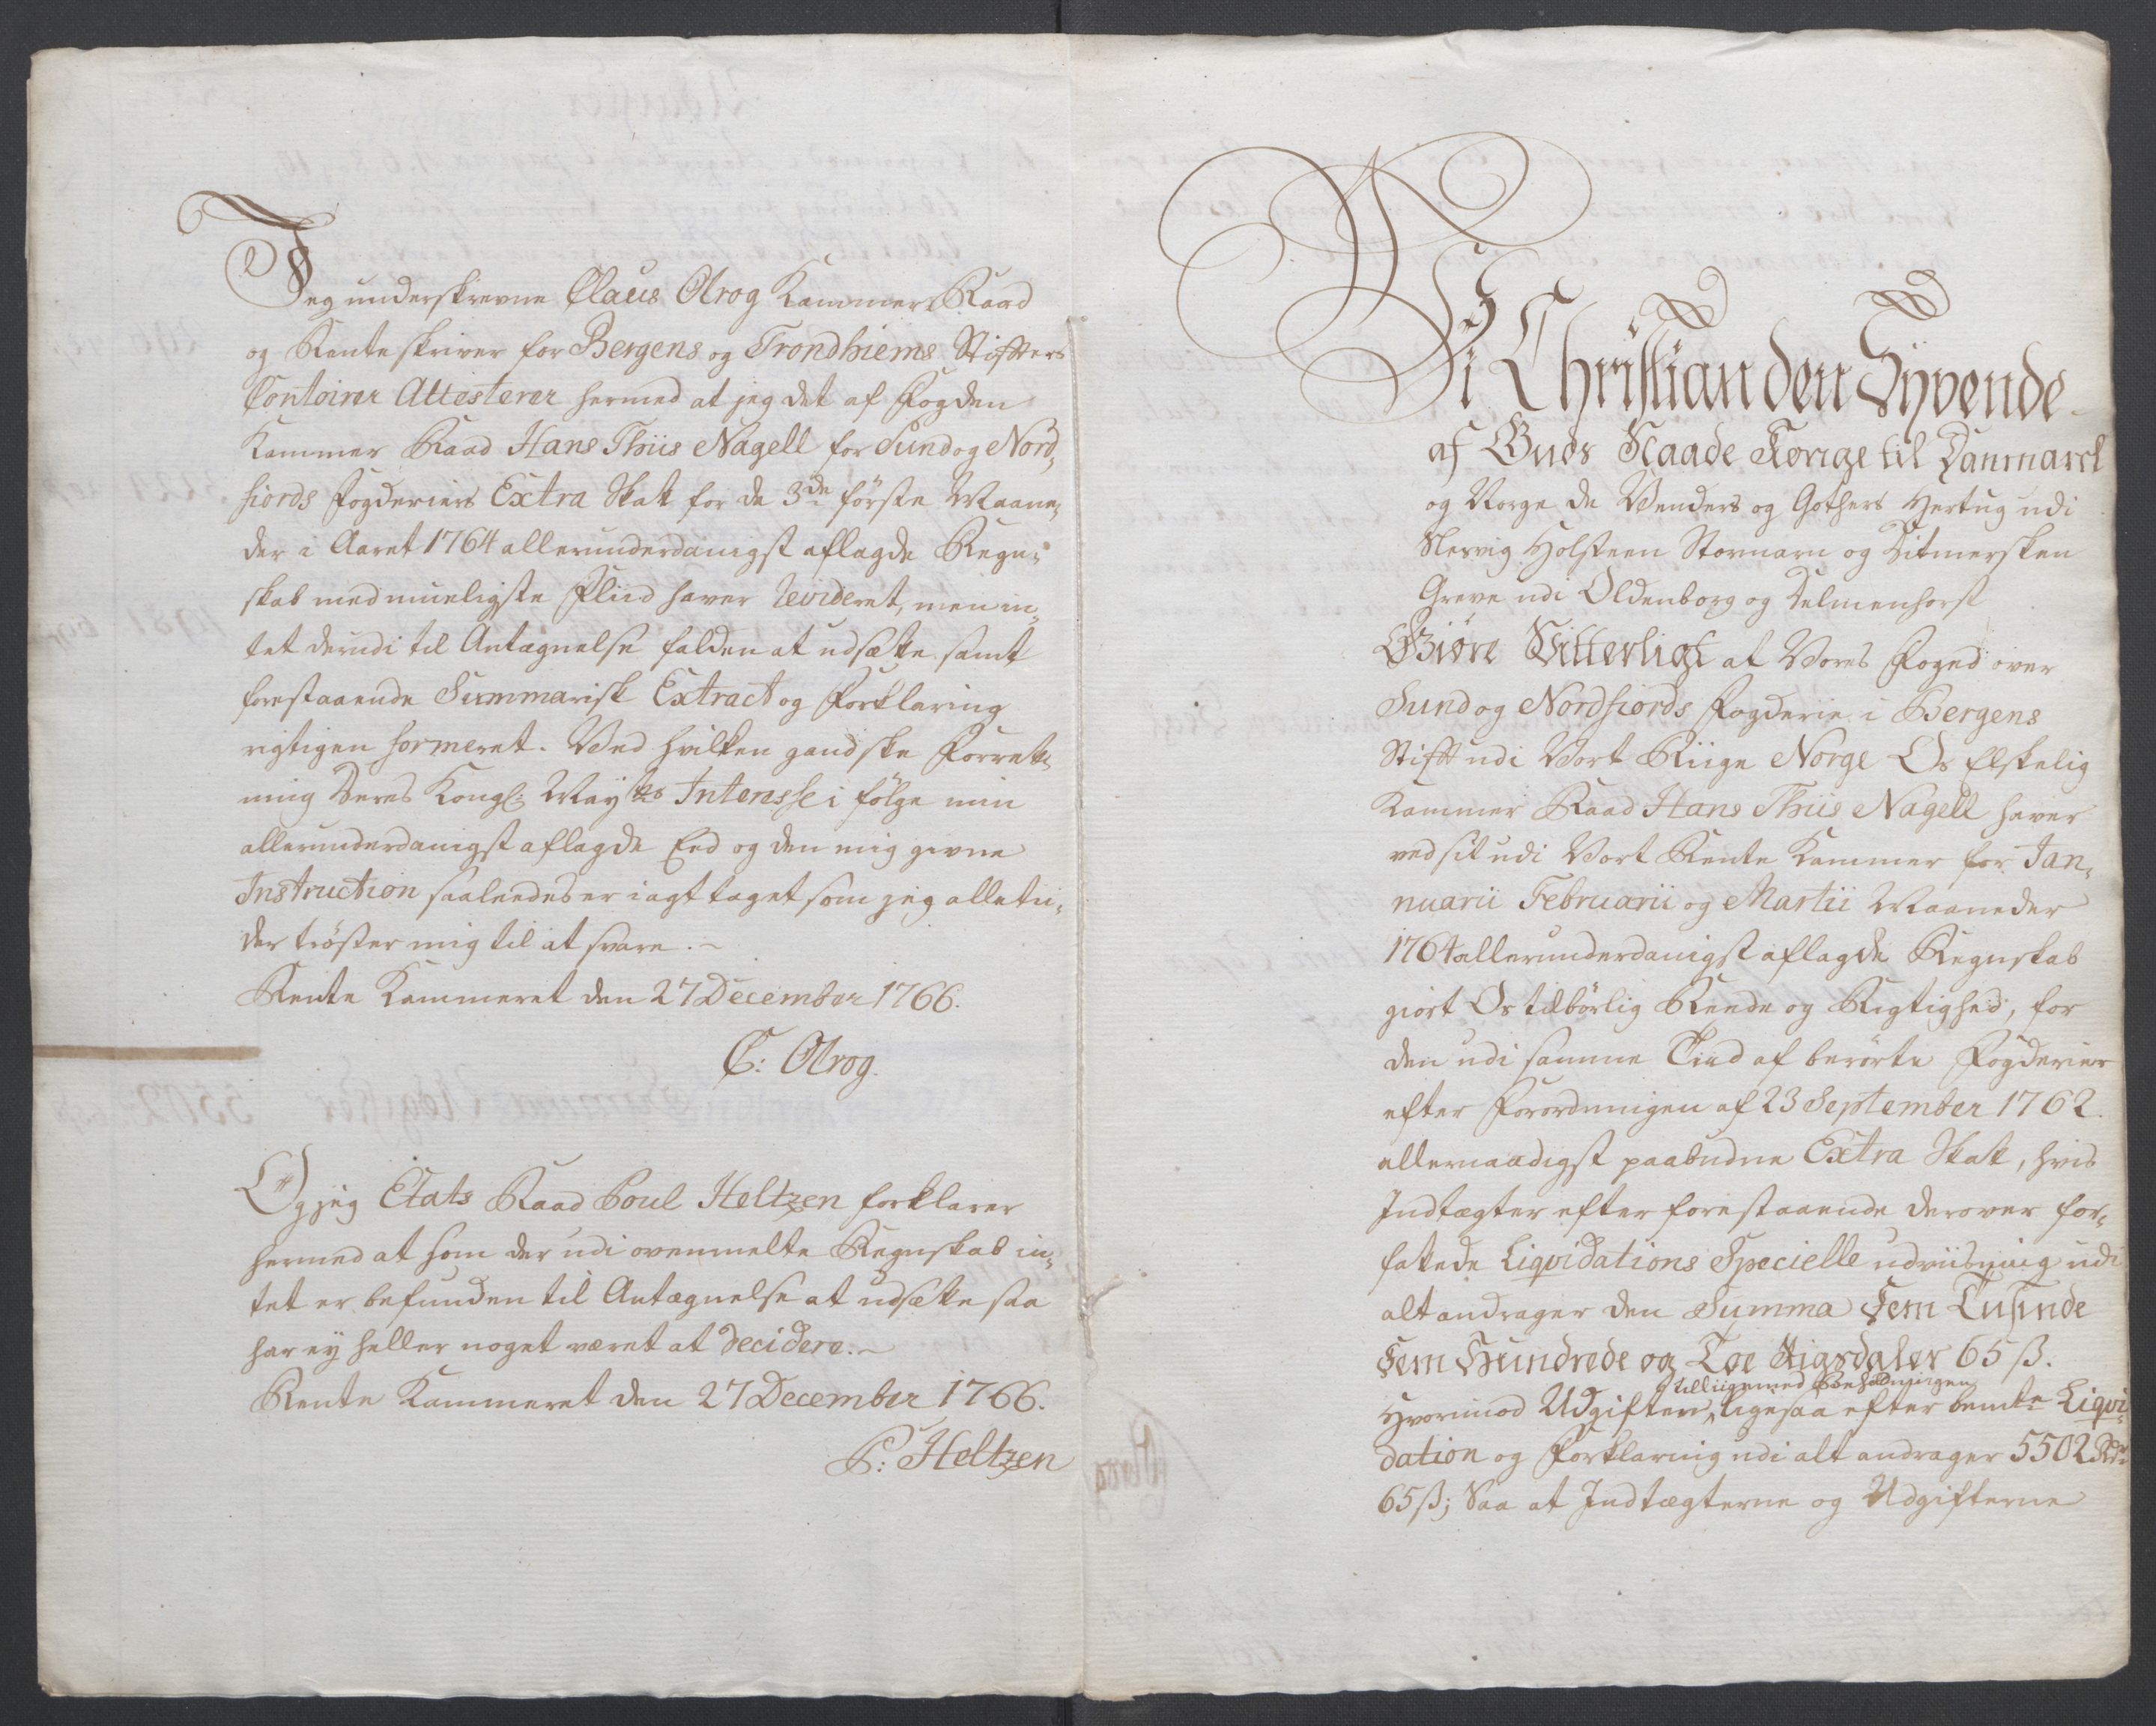 Jeg underskrevne Claus Olrog Kammer Raad
og Renteskriver for Bergens og Trondhiems Stifters
Contoirer Attesterer hermed at jeg det af Fogden
Kammer Raad Hans Thiis Nagell for Sund og Nord„
fiords Fogderiers Extra Skatt for de 3de første Maane„
der i Aaret 1764 allerunderdanigst aflagde Regn„
skab med mueligste Fliid haver Revideret, men in„
tet derudi til Antegnelse falden at udsætte samt
forestaaende Summarisk Extract og Forklaring
rigtigen formeret. Ved hvilken gandske Forret„
ning Deres Kongl: Mayts Interesse i følge min
allerunderdanigst aflagde Eed og den mig givne
Instruction saaledes er iagttaget som jeg alletii„
der trøster mig til at svare.
Rente Kammeret den 27 December 1766.
C: Olrog.
Og jeg Etats Raad Poul Heltzen forklarer
hermed at som der udi ovenmelte Regnskab in„
tet er befunden til Antegnelse at udsætte saa
har ey heller noget været at decidere.
Rente Kammeret den 27 December 1766.
P: Heltzen
Vi Christian den Syvende
af Guds Naade Konge til Danmarck
og Norge de Venders og Gothers Hertug udi
Slesvig Holsteen Stormarn og Ditmersken
Greve udi Oldenborg og Delmenhorst
Giøre Vitterligt at Vores Foged over
Sund og Nordfiords Fogderie i Bergens
Stift udi Vort Riige Norge Os Elskelig
Kammer Raad Hans Thiis Nagell haver
ved sit udi Vort Rente Kammer for Jan„
nuarii Februarii og Martii Maaneder
1764 allerunderdanigst aflagde Regnskab
giort Os tilbørlig Reede og Rigtighed, for
den udi samme Tiid af berørte Fogderier
efter Forordningen af 23 September 1762.
allernaadigst paabudne Extra Skatt, hvis
Indtægter efter forestaaende derover for„
fattede Liqvidations Specielle udviisning udi
alt andrager den Summa Fem Tusinde
Fem Hundrede og Toe Rigsdaler 65 ß.
tilliigemed Beholdningen
Hvorimod Udgiften, ligesaa efter bemte Liqvi„
dation og Forklaring udi alt andrager 5502 Rdr
65 ß; Saa at Indtægterne og Udgifterne